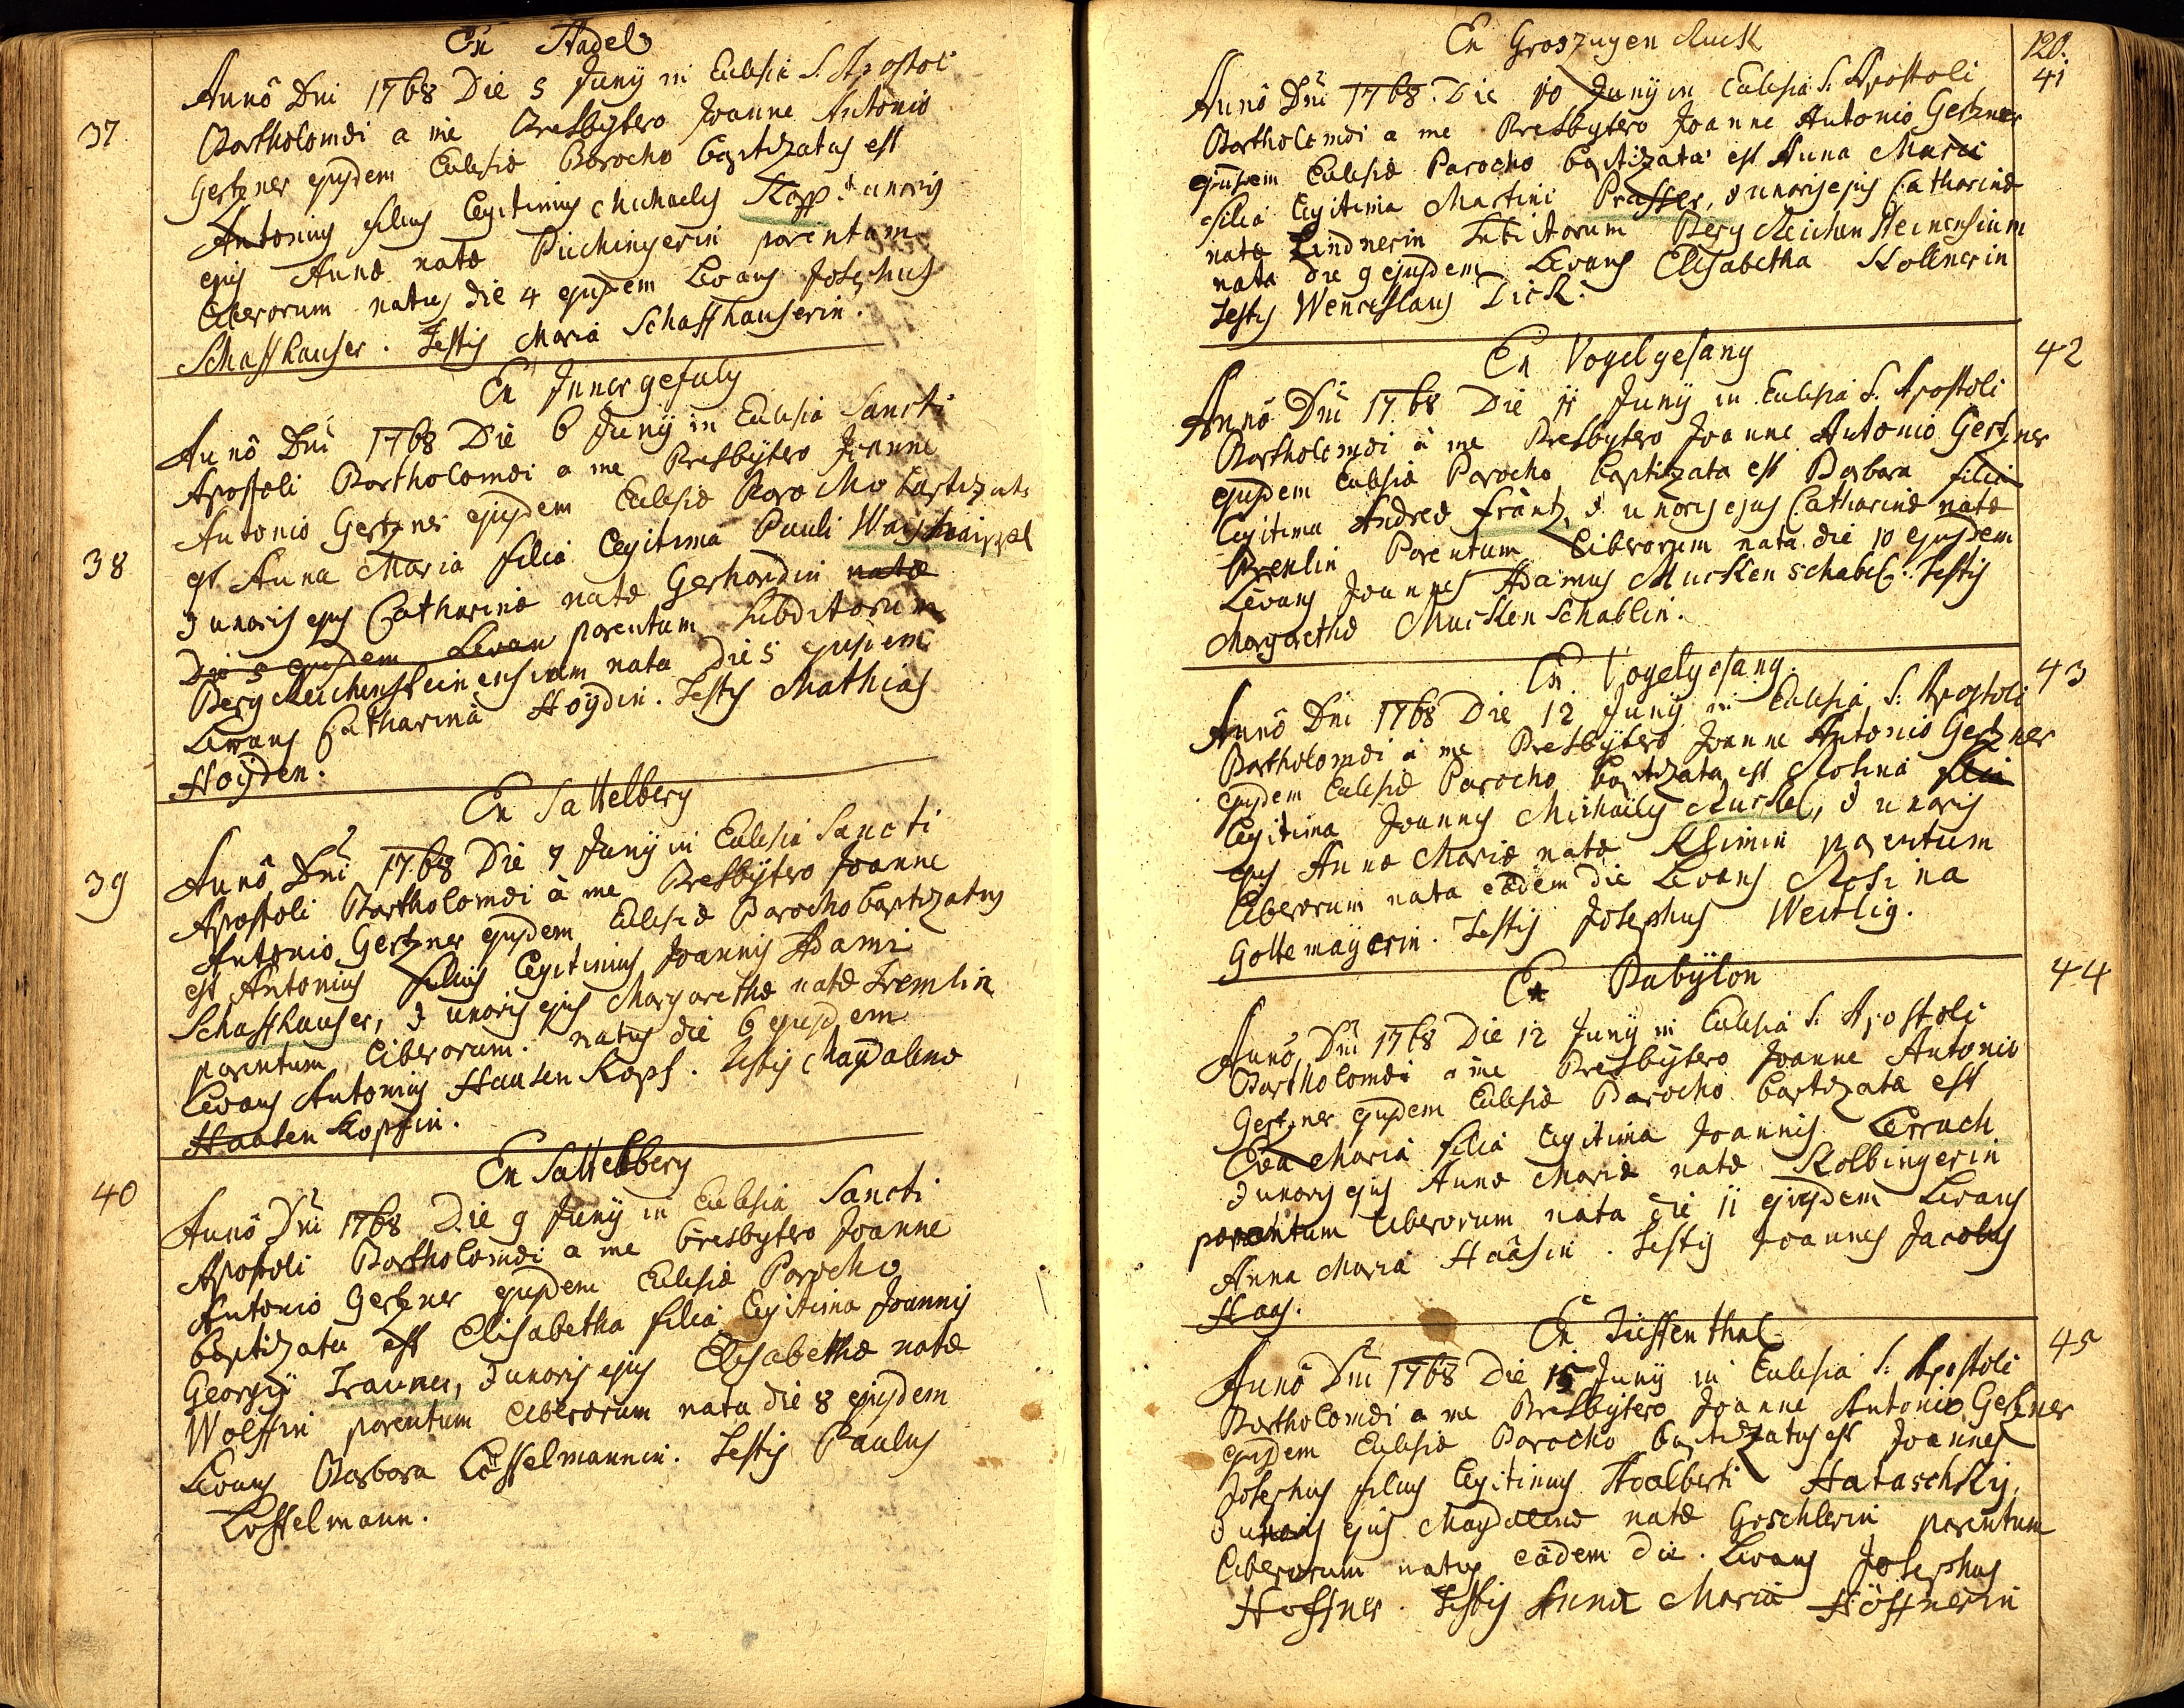 Ex Stadel
37
Anno Dni 1768 Die 5 Juny in Eclesia S. Apostoli
Bartholomæi a me Presbytero Joanne Antonio
Gertzner ejusdem Eclesiæ Parocho baptizatus est
Antonius filius legitimus Michaelis Kopp & uxoris
ejus Annæ natæ Puchingerin parentum
liberorum natus die 4 ejusdem Levans Josephus
Schaffhauser. Testis Maria Schaffhauserin.
Ex Innergefuly
38
Anno Dni 1768 Die 6 Juny in Eclesia Sancti
Apostoli Bartholomæi a me Presbytero Joanne
Antonio Gertzner ejusdem Eclesiæ Parocho baptizata
est Anna Maria filia legitima Pauli
& uxoris ejus Catharinæ natæ Gerhardin natæ
Die 5 ejusdem Levan parentum subditorum
Berg Reichensteinensium nata die 5 ejusdem
Levans Catharina Hoÿdin. Testis Mathias
Hoÿden.
Ex Sattelberg
39
Anno Dni 1768 Die 7 Juny in Eclesia Sancti
Apostoli Bartholomæi à me Presbytero Joanne
Antonio Gertzner ejusdem Eclesiæ Parocho baptizatus
est Antonius filius legitimus Joannis Adami
Schaffhauser, & uxoris ejus Margarethæ natæ Tremlin
parentum liberorum. natus die 6 ejusdem
Levans Antonius Haasen Kopf. testis Magdalena
Haasen Kopfin.
Ex Sattelberg
40
Anno Dni 1768 Die 9 Juny in Eclesia Sancti
Apostoli Bartholomæi a me Presbytero Joanne
Antonio Gertzner ejusdem Eclesiæ Parocho
baptizata est Elisabetha filia legitima Joannis
Georgÿ Trauner, & uxoris ejus Elisabethæ natæ
Wolffin parentum liberorum nata die 8 ejusdem
Levans Barbara Löffelmannin. Testis Paulus
Löffelmann.
120.
Ex Groszugen Ruck
41
Anno Dni 1768. Die 10 Juny in Eclesia S. Apostoli
Bartholomæi a me Presbytero Joanne Antonio Gertzner
ejusdem Eclesiæ Parocho baptizata est Anna Maria
filia legitima Martini Prasser, & uxoris ejus Catharinæ
natæ Lindnerin Subditorum Berg Reichensteinensium
nata die 9 ejusdem Levans Elisabetha Kollnerin
testis Wenceslaus Dick.
Ex Vogelgesang
42
Anno Dni 1768 Die 11 Juny in Eclesia S. Apostoli
Bartholomæi à me Presbytero Joanne Antonio Gertzner
ejusdem Eclesiæ Parocho baptizata est Barbara filia
legitima Andreæ Frantz, & uxoris ejus Catharinæ natæ
Prenlin Parentum liberorum nata die 10 ejusdem
Levans Joannes Adamus Mucken schabel. Testis
Margaretha Mucken Schablin.
Ex Vogelgesang.
43
Anno Dni 1768 Die 12 Juny in Eclesia S. Apostoli
Bartholomæi à me Presbytero Joanne Antonio Gertzner
ejusdem Eclesiæ Parocho baptizata est Rosina filia
legitima Joannis Michaelis Ruckel, & uxoris
ejus Annæ Mariæ natæ Klimin parentum
liberorum nata eâdem die Levans Rosina
Gottemayerin. Testis Josephus Weitlig.
Ex Babÿlon
44
Anno Dni 1768 Die 12 Juny in Eclesia S. Apostoli
Bartholomæi a me Presbytero Joanne Antonio
Gertzner ejusdem Eclesiæ Parocho baptizata est
Eva Maria filia legitima Joannis Lerrach
& uxoris ejus Annæ Mariæ natæ Kolbingerin
parentum liberorum nata die 11 ejusdem Levans
Anna Maria Haâsin. Testis Joannes Jacobus
Haas.
Ex Tieffenthal
45
Anno Dni 1768 Die 15 Juny in Eclesia S. Apostoli
Bartholomæi a me Presbytero Joanne Antonio Gertzner
ejusdem Eclesiæ Parocho baptizatus est Joannes
Josephus filius legitimus Adalberti Hataschky,
& uxoris ejus Magdalenæ natæ Goschlerin parentum
liberorum natus eâdem die. Levans Josephus
Hoffner. Testis Anna Maria Höffnerin